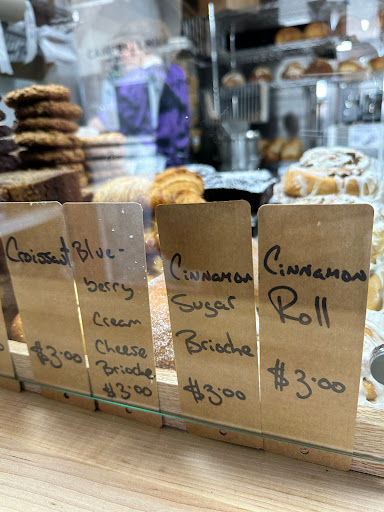 Croissant
$3.00
Blue-
berry
Cream
Cheese
Brioche
$3.00
Cinnamon
Sugar
Brioche
$3.00
Cinnamon
Roll
$3.00